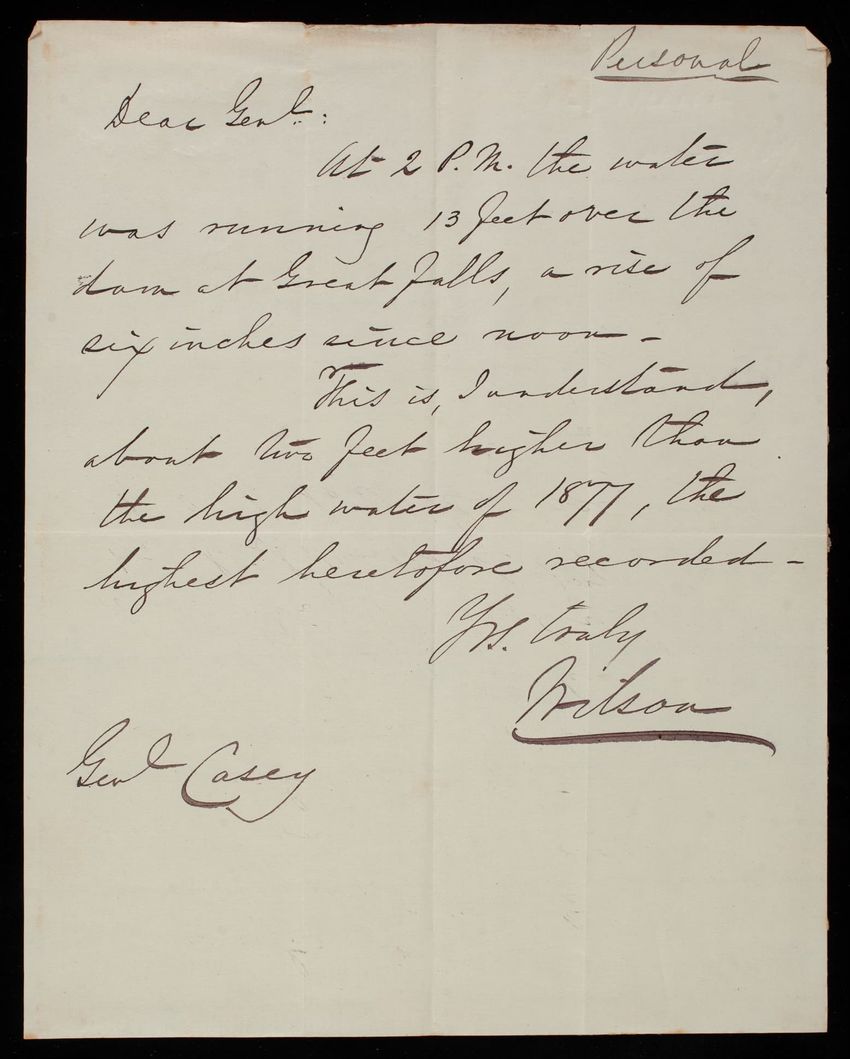 Personal
Dear Genl.:
At 2 P.M. the water
was running 13 feet over the
dam at Great Falls, a rise of
six inches since noon -
This is, I understand,
about two feet higher than
the high water of 1877, the
highest heretofore recorded -
Yrs. truly
Wilson
Genl Casey